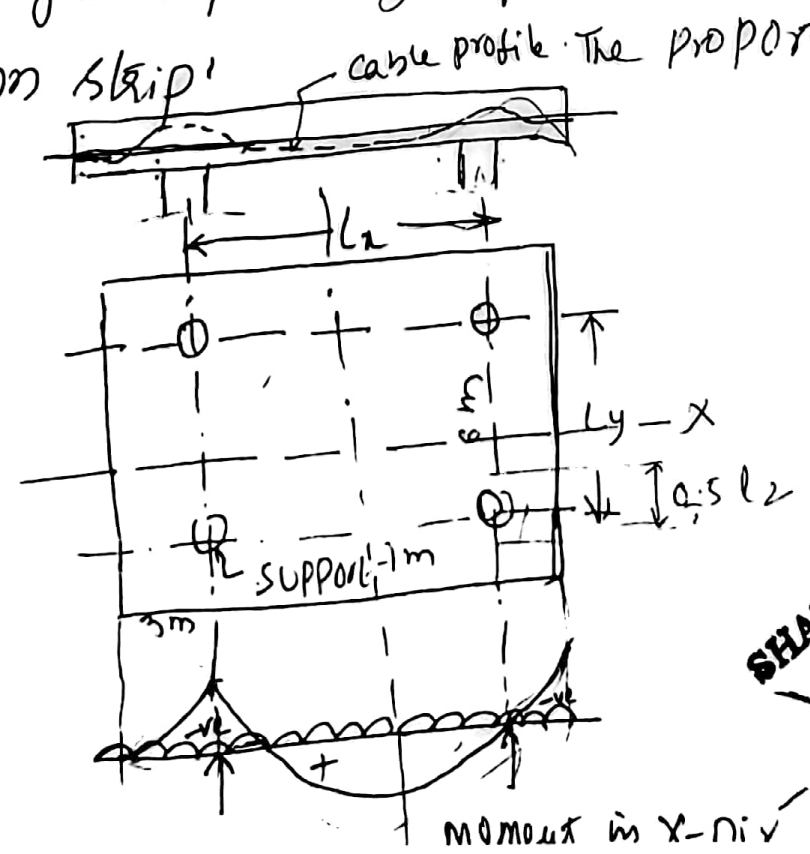 on strip'
cable profile. The propor
Lx
6m
Ly - X
0.5 l2
support
m
3m
-ve
-ve
+
momout in X-Div
SHA